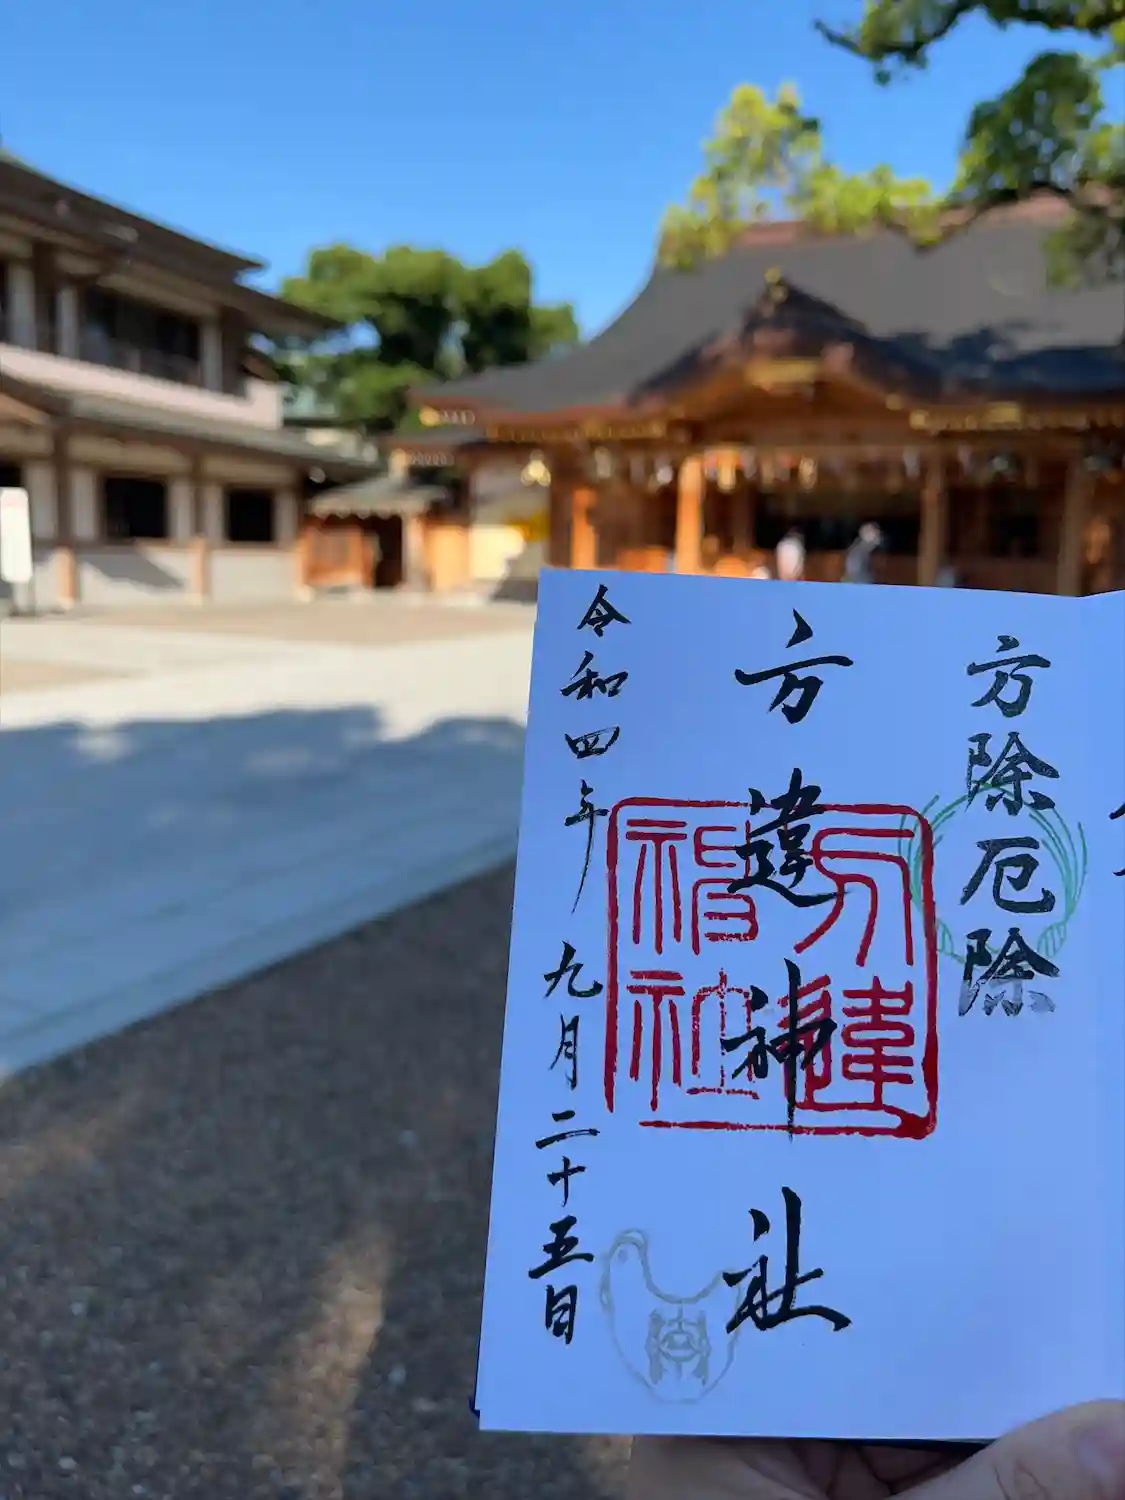 方除厄除
方違神社
方違神社
令和四年 九月二十五日